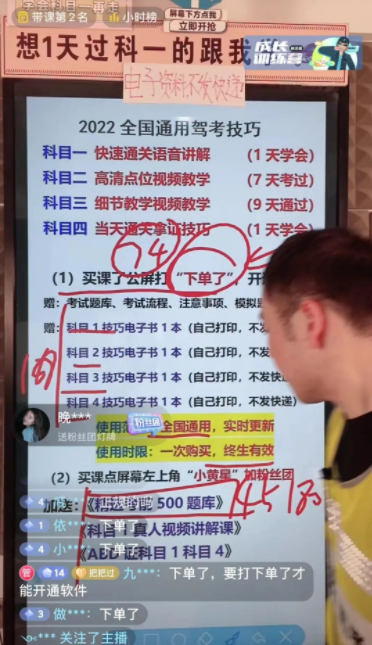 学会科目一再走
带课第2名
小时榜
屏幕下方点我
立即开抢
想1天过科一的跟我学
成长
训练营
电子资料不发快递
2022 全国通用驾考技巧
科目一 快速通关语音讲解 (1 天学会)
科目二 高清点位视频教学 (7 天考过)
科目三 细节教学视频教学 (9 天通过)
科目四 当天通关拿证技巧 (1 天学会)
(1) 买课了公屏打 “下单了”, 开
赠: 考试题库、考试流程、注意事项、模拟题
赠: 科目 1 技巧电子书 1 本 (自己打印, 不发
科目 2 技巧电子书 1 本 (自己打印, 不发
科目 3 技巧电子书 1 本 (自己打印, 不发快
科目 4 技巧电子书 1 本 (自己打印, 不发快递)
晚***
送粉丝团灯牌
粉丝团
使用范 全国通用, 实时更新
使用时限: 一次购买, 终生有效
(2) 买课点屏幕左上角 “小黄星” 加粉丝团
加送: 500 题库》
4
1 依***: 下单了
《科目 1 真人视频讲解课》
4 小***: 下单了
证科目 1 科目 4》
管 14 把把过 九***: 下单了,要打下单了才
能开通软件
3 做***: 下单了
*** 关注了主播